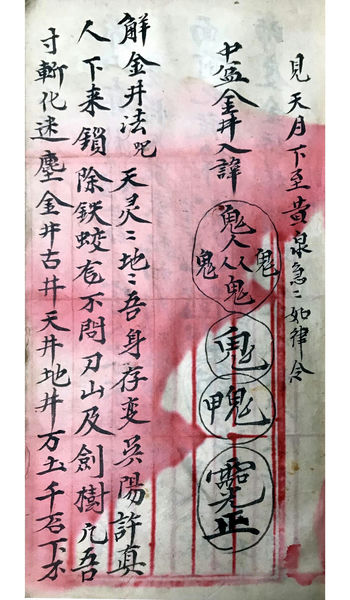 見天月下至黄泉急〻如律令
中盆金井入諱
鬼人从鬼鬼鬼
解金井法咒 天灵〻地〻吾身存变吳陽許真
人下来鎖除鉄蛟 不問刀山及劍樹 吾
寸斬化迷塵金井古井天井地井万丈千 下不